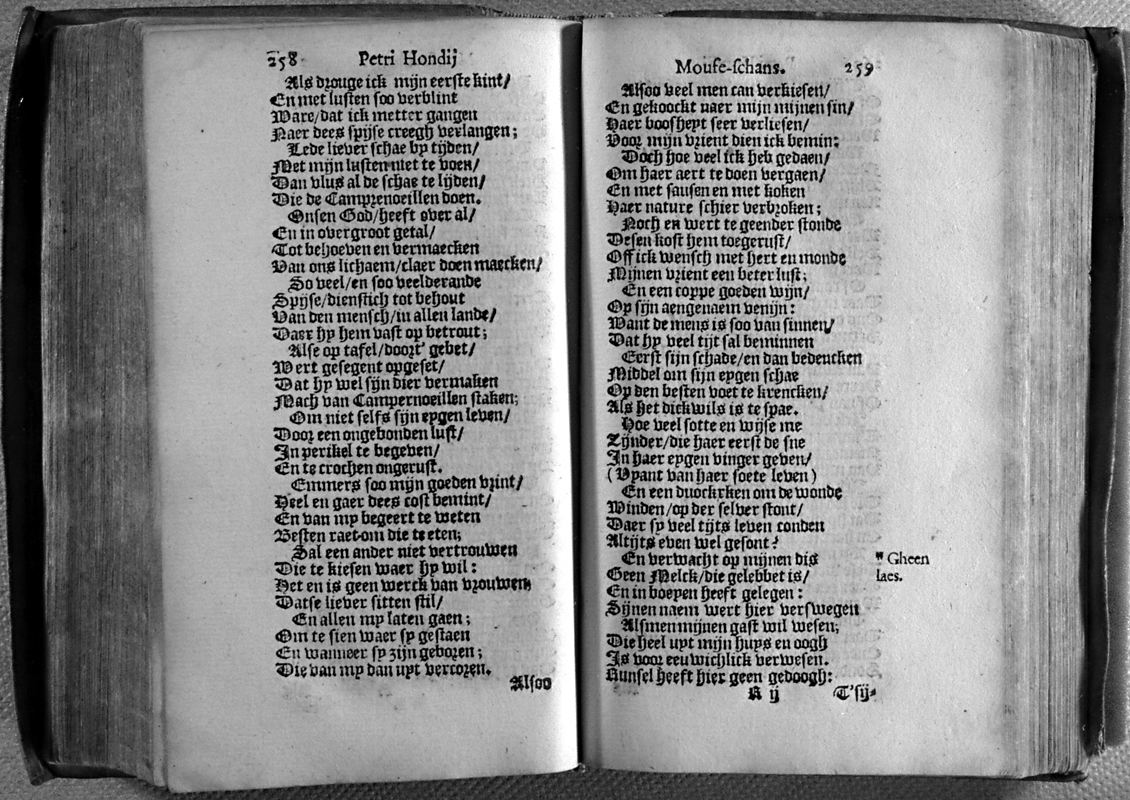 258 Petri Hondij
Als drouge ick mijn eerste kint/
En met lusten soo verblint
Ware/dat ick metter gangen
Naer dees spijse creegh verlangen;
Lede liever schae by tijden/
Met mijn lusten niet te voen/
Dan vlus al de schae te lijden/
Die de Camprenoeillen doen.
Onsen God/heeft over al/
En in overgroot getal/
Tot behoeven en vermaecken
Van ons lichaem/claer doen maecken/
So veel/en soo veelderande
Spijse/dienstich tot behout
Van den mensch/in allen lande/
Daer hy hem vast op betrout;
Alse op tafel/doort' gebet/
Wert gesegent opgeset/
Dat hy wel sijn dier vermaken
Mach van Campernoeillen staken;
Om niet selfs sijn eygen leven/
Door een ongebonden lust/
In perikel te begeven/
En te crochen ongerust.
Emmers soo mijn goeden vrint/
Heel en gaer dees cost bemint/
En van my begeert te weten
Besten raet om die te eten;
Sal een ander niet vertrouwen
Die te kiesen waer hy wil:
Het en is geen werck van vrouwen
Datse liever sitten stil/
En allen my laten gaen;
Om te sien waer sy gestaen
En wanneer sy zijn geboren;
Die van my dan uyt vercoren.
Alsoo
Moufe-schans. 259
Alsoo veel men can verkiesen/
En gekoockt naer mijn mijnen sin/
Haer boosheyt seer verliesen/
Voor mijn vrient dien ick bemin:
Doch hoe veel ick heb gedaen/
Om haer aert te doen vergaen/
En met sausen en met koken
Haer nature schier verbroken;
Noch en wert te geender stonde
Desen kost hem toegerust/
Off ick wensch met hert en monde
Mijnen vrient een beter lust;
En een coppe goeden wijn/
Op sijn aengenaem venijn:
Want de mens is soo van sinnen/
Dat hy veel tijt sal beminnen
Eerst sijn schade/en dan bedencken
Middel om sijn eygen schae
Op den besten voet te krencken/
Als het dickwils is te spae.
Hoe veel sotte en wijse me
Zijnder/die haer eerst de sne
In haer eygen vinger geven/
(Vyant van haer soete leven)
En een duockrken om de wonde
Winden/op der selver stont/
Daer sy veel tijts leven conden
Altijts even wel gesont?
En verwacht op mijnen dis
Geen Melck/die gelebbet is/
En in boeyen heeft gelegen:
Sijnen naem wert hier verswegen
Alsmen mijnen gast wil wesen;
Die heel uyt mijn huys en oogh
Is voor eeuwichlick verwesen.
Runsel heeft hier geen gedoogh:
" Gheen
laes.
R ij T'sij-